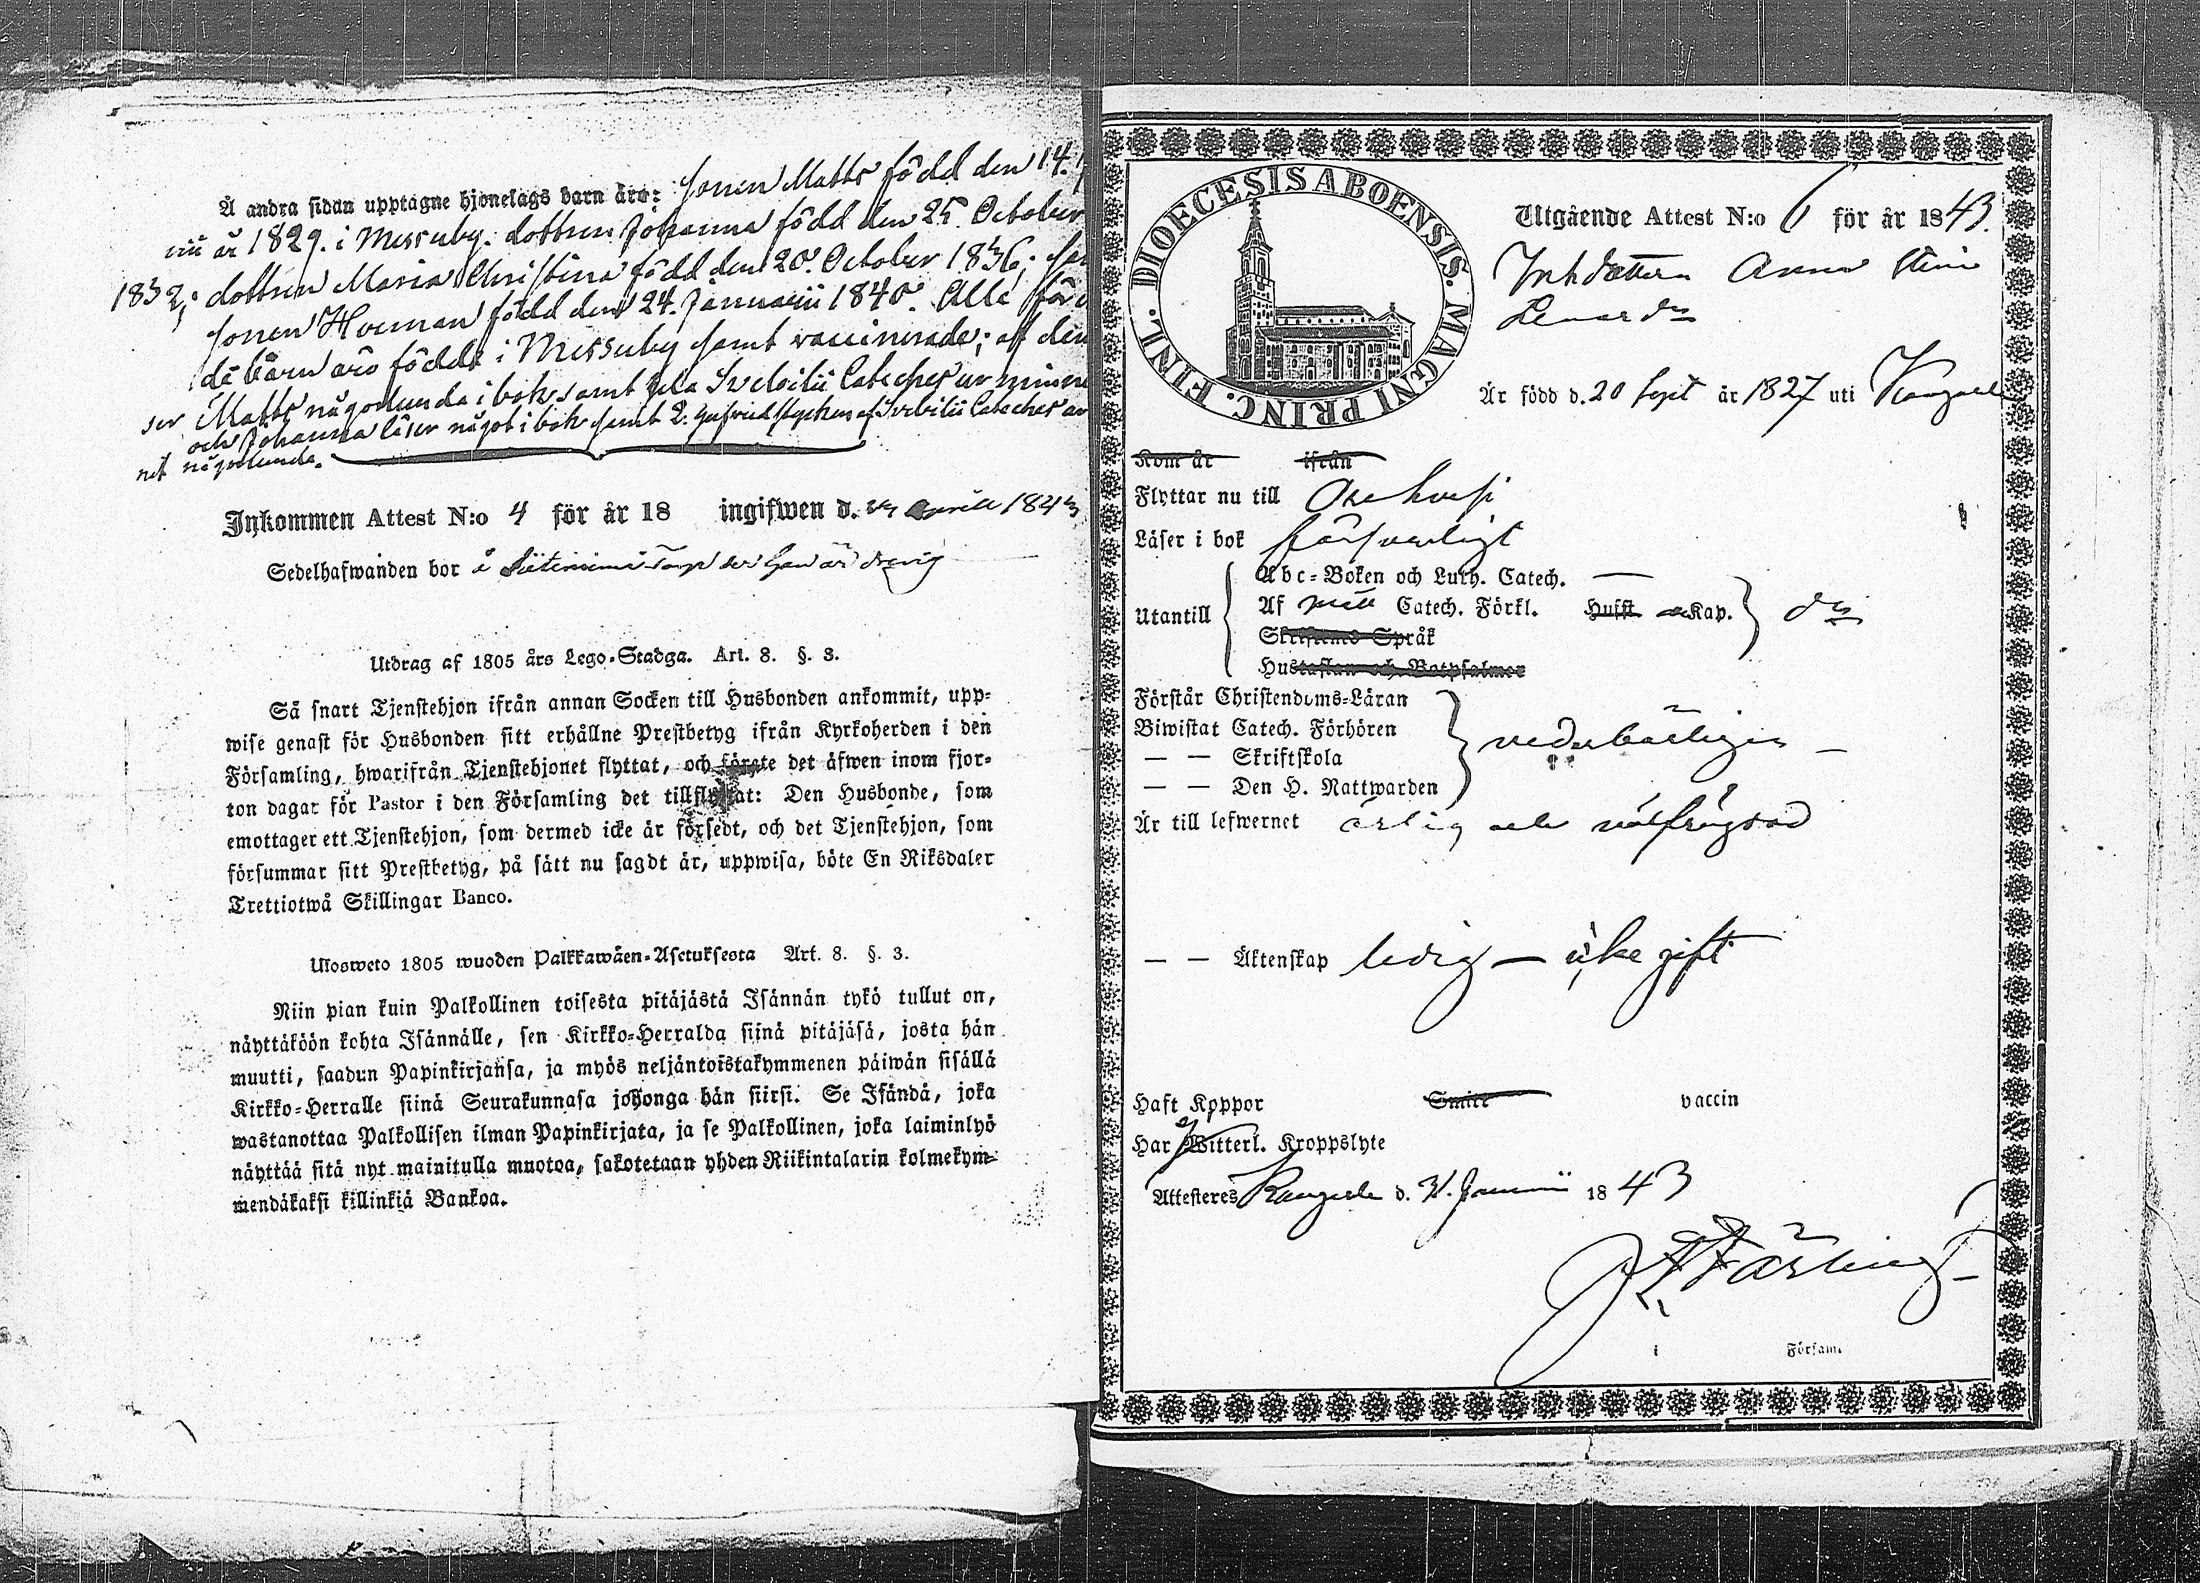 Å andra sidan upptagne hjonelags barn äro: sonen Matts född den 14.
nii år 1829. i Messuby. dottren Johanna född den 25. October
1832; dottren Maria Christina född den 20. October 1836; sam
sonen Herman född den 24. Januarii 1840. Alla
barn äro födde i Messuby samt vaccinerade; af dem
ser Matts någorlunda i bok samt hela Svebilii Cateches ur minne
och Johanna läser något i bok samt 2. hufvudstycken af Svebilii Cateches ur
net någorlunda.
Inkommen Attest N:o 4 för år 18 ingifwen d. April 1843
Sedelhafwanden bor å torp der han är dräng
Utdrag af 1805 års Lego-Stadga. Art. 8. §. 3.
Så snart Tjenstehjon ifrån annan Socken till Husbonden ankommit, upp-
wise genast för Husbonden sitt erhållne Prestbetyg ifrån Kyrkoherden i den
Församling, hwarifrån Tjenstehjonet flyttat, och förete det äfwen inom fjor-
ton dagar för Pastor i den Församling det tillflyttat: Den Husbonde, som
emottager ett Tjenstehjon, som dermed icke är försedt, och det Tjenstehjon, som
försummar sitt Prestbetyg, på sätt nu sagdt är, uppwisa, böte En Riksdaler
Trettiotwå Skillingar Banco.
Ulosweto 1805 wuoden Palkkawäen-Asetuksesta Art. 8. §. 3.
Niin pian kuin Palkollinen toisesta pitäjästä Isännän tykö tullut on,
näyttäköön kohta Isännälle, sen Kirkko-Herralda siinä pitäjäsä, josta hän
muutti, saadun Papinkirjansa, ja myös neljäntoistakymmenen päiwän sisällä
Kirkko-Herralle siinä Seurakunnasa johonga hän siirsi. Se Isändä, joka
wastanottaa Palkollisen ilman Papinkirjata, ja se Palkollinen, joka laiminlyö
näyttää sitä nyt mainitulla muotoa, sakotetaan yhden Riikintalarin kolmekym-
mendäkaksi killinkiä Bankoa.
DIOECESIS ABOENSIS. MAGNI PRINC. FINL.
Utgående Attest N:o 6 för år 1843.
Inhdottern Anna Stina
Är född d. 20 Sept år 1827 uti Kangasala
Kom år ifrån
Flyttar nu till Orihvesi
Läser i bok försvarligt
Utantill
Abc-Boken och Luth. Catech. —
Af Catech. Förkl. Hufst Kap.
Skriftenes Språk
Hustaflan och Botpsalmer
Förstår Christendoms-Läran
Biwistat Catech. Förhören
— — Skriftskola
— — Den H. Nattwarden
vederbörligen —
Är till lefwernet ärlig och välfrägdad
— — Äktenskap ledig — icke gift
Haft Koppor Smitt vaccin
Har ej Witterl. Kroppslyte
Attesteres Kangasala d. 31. Januarii 1843
i Församl